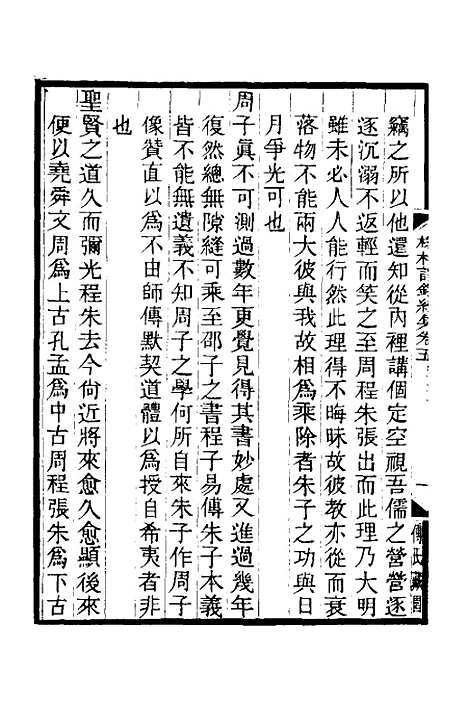 竊之所以他還知從內裡講個定空視吾儒之營營逐
逐沉溺不返輕而笑之至周程朱張出而此理乃大明
雖未必人人能行然此理得不晦昧故彼教亦從而衰
落物不能兩大彼與我故相為乘除者朱子之功與日
月爭光可也
周子真不可測過數年更覺見得其書妙處又進過幾年
復然總無隙縫可乘至邵子之書程子易傳朱子本義
皆不能無遺義不知周子之學何所自來朱子作周子
像贊直以為不由師傳默契道體以為授自希夷者非
也
聖賢之道久而彌光程朱去今尚近將來愈久愈顯後來
便以堯舜文周為上古孔孟為中古周程張朱為下古
語錄續集卷五
一